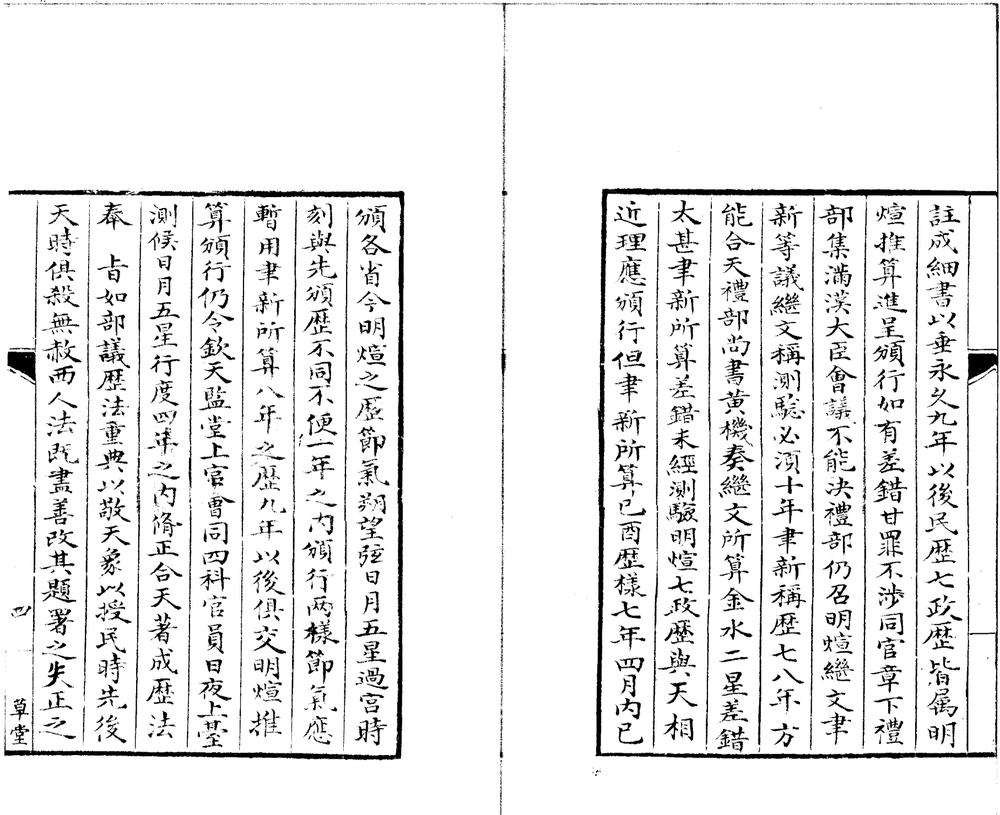 註成細書以垂永久九年以後民歷七政歷皆属明
煊推算進呈頒行如有差錯甘罪不涉同官章下禮
部集滿漢大臣會議不能决禮部仍召明煊繼文聿
新等議繼文稱測驗必湏十年聿新稱歷七八年方
能合天禮部尚書黄機奏繼文所算金水二星差錯
太甚聿新所算差錯未經測驗明煊七政歷與天相
近理應頒行但聿新所算已酉歷樣七年四月内已
頒各省今明煊之歷節氣朔望弦日月五星過宫時
刻與先頒歷不同不便一年之内頒行两樣節氣應
暫用聿新所算八年之歷九年以後俱交明煊推
算頒行仍令欽天監堂上官會同四科官員日夜上臺
測候日月五星行度四年之内脩正合天著成歷法
奉　旨如部議歷法重典以敬天象以授民時先後
天時俱殺無赦西人法既盡善改其題署之失正之
四
草堂